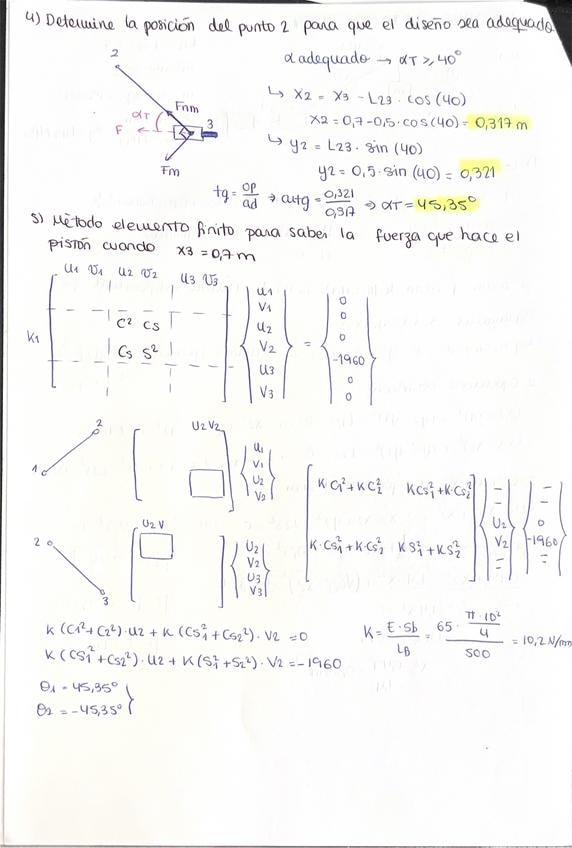 4) Determine la posición del punto 2 para que el diseño sea adequado
2
α adequado → αT ≥ 40°
αT
Fnm
3
F
Fm
↳ X2 = X3 - L23 · cos (40)
X2 = 0,7 - 0,5 · cos (40) = 0,317 m
↳ y2 = L23 · sin (40)
y2 = 0,5 · sin (40) = 0,321
tg = op/ad → arctg = 0,321/0,317 ⇒ αT = 45,35°
5) Método elemento finito para saber la fuerza que hace el
pistón cuando X3 = 0,7 m
U1 V1 U2 V2 U3 V3
K1
C² CS
CS S²
U1
V1
U2
V2
U3
V3
=
0
0
0
-1960
0
0
1
2
U2 V2
U1
V1
U2
V2
2
3
U2 V
U2
V2
U3
V3
K C1² + K C2² K CS1² + K · CS2²
K · CS1² + K · CS2² K S1² + K S2²
U2
V2
0
-1960
K (C1² + C2²) · U2 + K (CS1² + CS2²) · V2 = 0
K (CS1² + CS2²) · U2 + K (S1² + S2²) · V2 = -1960
K = E · Sb / LB = 65 · (π · 10² / 4) / 500 = 10,2 N/mm
θ1 = 45,35°
θ2 = -45,35°